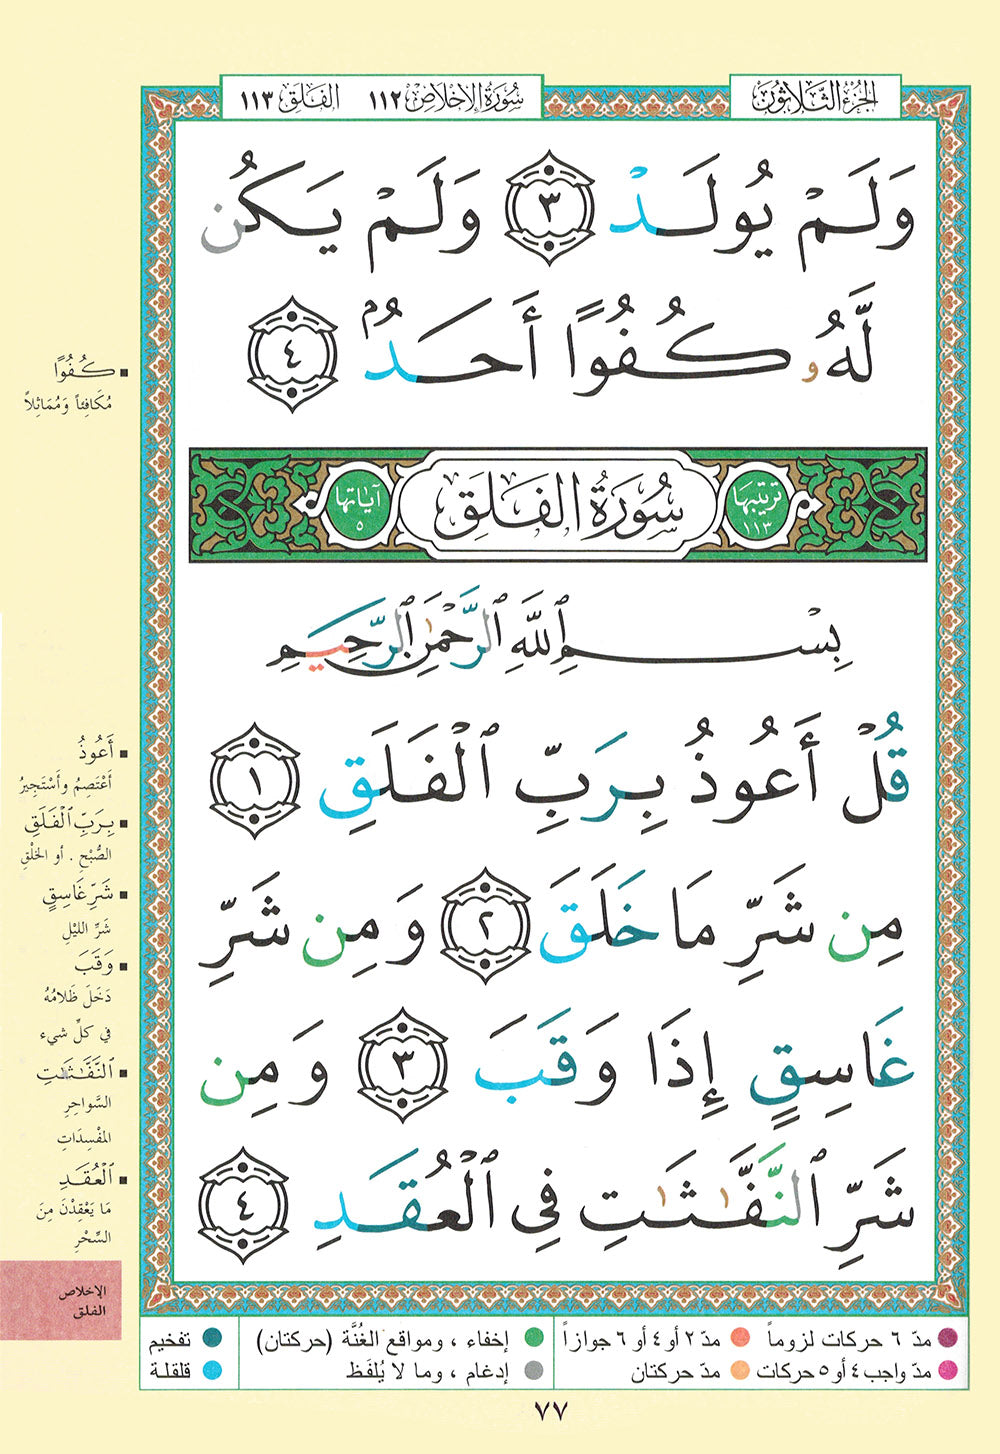 الجزء الثلاثون
سورة الإخلاص ١١٢ الفلق ١١٣
وَلَمْ يُولَدْ ٣ وَلَمْ يَكُن
لَّهُۥ كُفُوًا أَحَدٌۢ ٤
ترتيبها ١١٣
سُورَةُ الفَلَقِ
آياتها ٥
بِسْمِ ٱللَّهِ ٱلرَّحْمَٰنِ ٱلرَّحِيمِ
قُلْ أَعُوذُ بِرَبِّ ٱلْفَلَقِ ١
مِن شَرِّ مَا خَلَقَ ٢ وَمِن شَرِّ
غَاسِقٍ إِذَا وَقَبَ ٣ وَمِن
شَرِّ ٱلنَّفَّٰثَٰتِ فِى ٱلْعُقَدِ ٤
كُفُوًا
مُكَافِئاً وَمُمَاثِلاً
أَعُوذُ
أَعْتَصِمُ وأَسْتَجِيرُ
بِرَبِّ ٱلْفَلَقِ
الصُّبْحِ . أو الخَلْقِ
شَرِّ غَاسِقٍ
شَرِّ الليْلِ
وَقَبَ
دَخَلَ ظَلامُهُ
في كلِّ شيء
ٱلنَّفَّٰثَٰتِ
السَّواحِرِ
المفْسِدَاتِ
ٱلْعُقَدِ
مَا يَعْقِدْنَ مِنَ
السِّحْرِ
الإخلاص
الفلق
مدّ ٦ حركات لزوماً
مدّ ٢ أو ٤ أو ٦ جوازاً
إخفاء ، ومواقع الغُنَّة (حركتان)
تفخيم
مدّ واجب ٤ أو ٥ حركات
مدّ حركتان
إدغام ، وما لا يُلفَظ
قلقلة
٧٧